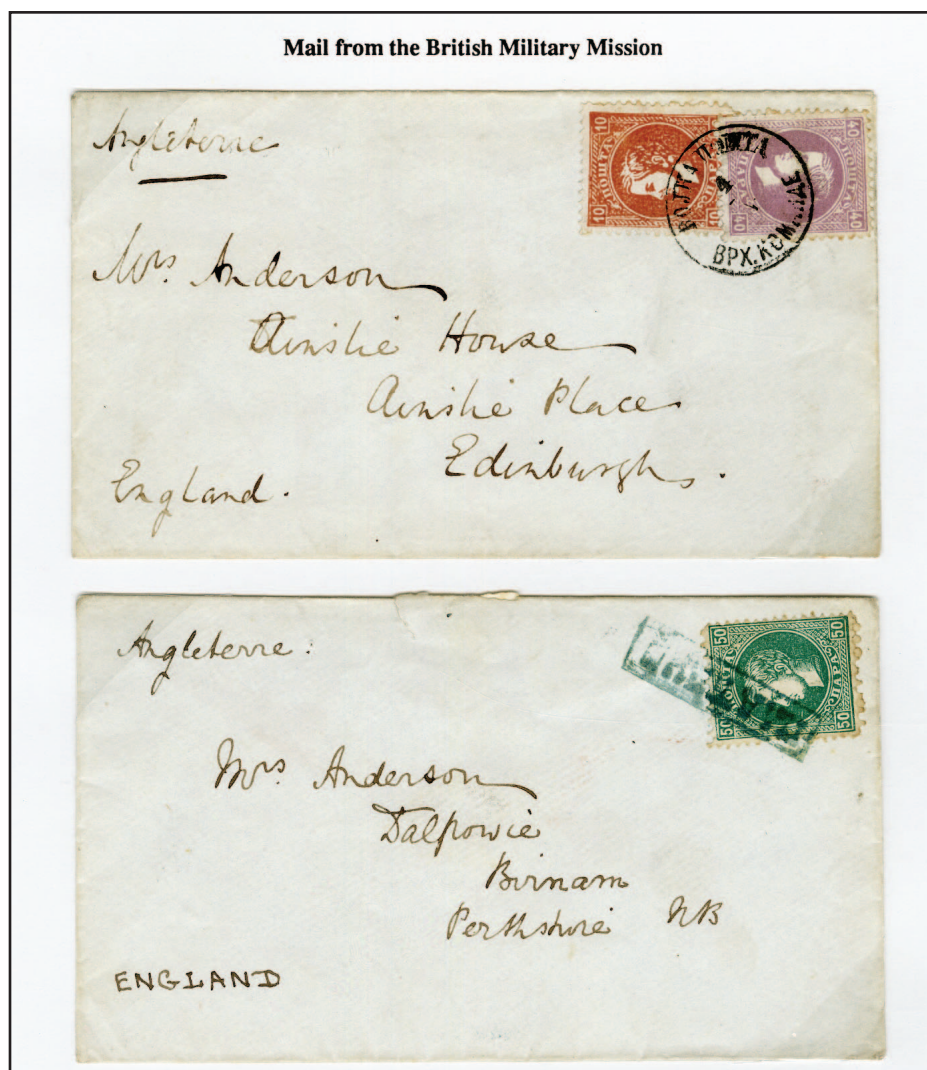 Mail from the British Military Mission
Angleterre
10 10
ПОШТА ПАРА
10 10
40
ПОШТА
40 40
ВОЈНА ПОШТА
4
ВРХ. КОМ
Mrs. Anderson
Ainslie House
Ainslie Place
Edinburgh.
England.
Angleterre.
50 50
ПОШТА ПАРА
50 50
Mrs Anderson
Dalpowie
Birnam
Perthshire NB
ENGLAND